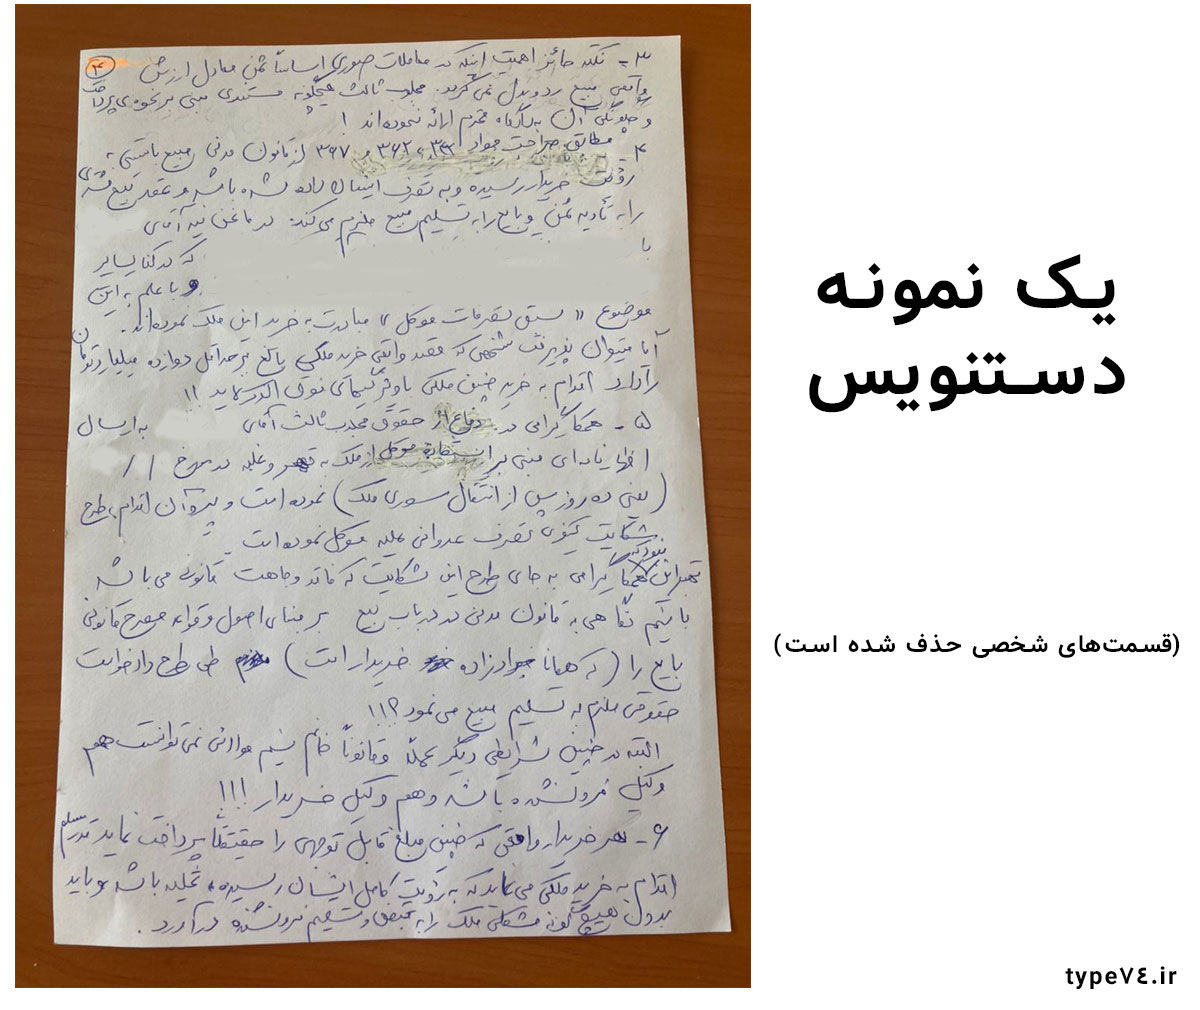 ۴
۳- نکته حائز اهمیت اینکه در معاملات صوری اساساً ثمن معادل ارزش
واقعی مبیع رد و بدل نمی گردد. مجلوب ثالث هیچگونه مستندی مبنی بر نحوه ی پرداخت
و چگونگی آن به دادگاه محترم ارائه ننموده اند !
۴- مطابق صراحت مواد ۳۶۲ و ۳۶۷ از قانون مدنی مبیع بایستی به
رؤیت خریدار رسیده و به تصرف ایشان داده شده باشد و عقد بیع مشتری
را به تأدیه ثمن و بایع را به تسلیم مبیع ملزم می کند. در ما نحن فیه آقای
با
که در کنار سایر
و با علم به این
موضوع « سبق تصرفات موکل » مبادرت به خرید این ملک نموده اند.
آیا میتوان پذیرفت شخصی که قصد واقعی خرید ملکی بالغ بر حداقل دوازده میلیارد تومان
را دارد اقدام به خرید چنین ملکی با وضعیت فوق الذکر نماید !!
۵- همکار گرامی در دفاع از حقوق مجلوب ثالث آقای به ارسال
اظهارنامه ای مبنی بر استفاده موکل از ملک به قهر و غلبه در مورخ / /
(یعنی ده روز پس از انتقال سوری ملک) نموده است و پیرو آن اقدام به طرح
شکایت کیفری تصرف عدوانی علیه موکل نموده است.
بهتر نبود که همکار گرامی به جای طرح این شکایت که فاقد وجاهت قانونی می باشد
با نیم نگاهی به قانون مدنی در باب بیع بر مبنای اصول و قواعد مصرح قانونی
بایع را (که همانا جوادزاده خریدار است) طی طرح دادخواست
حقوقی ملزم به تسلیم مبیع می نمود؟!!
البته در چنین شرایطی دیگر عملاً و قانوناً خانم نسیم نمی توانست هم
وکیل فروشنده باشد و هم وکیل خریدار !!!
۶- هر خریدار واقعی که چنین مبلغ قابل توجهی را حقیقتاً پرداخت نماید قدر مسلم
اقدام به خرید ملکی می نماید که به رؤیت کامل ایشان رسیده، تخلیه باشد و باید
بدون هیچ گونه مشکلی ملک را به قبض و تسلیم فروشنده درآورد.
یک نمونه
دستنویس
(قسمت‌های شخصی حذف شده است)
type۷٤.ir